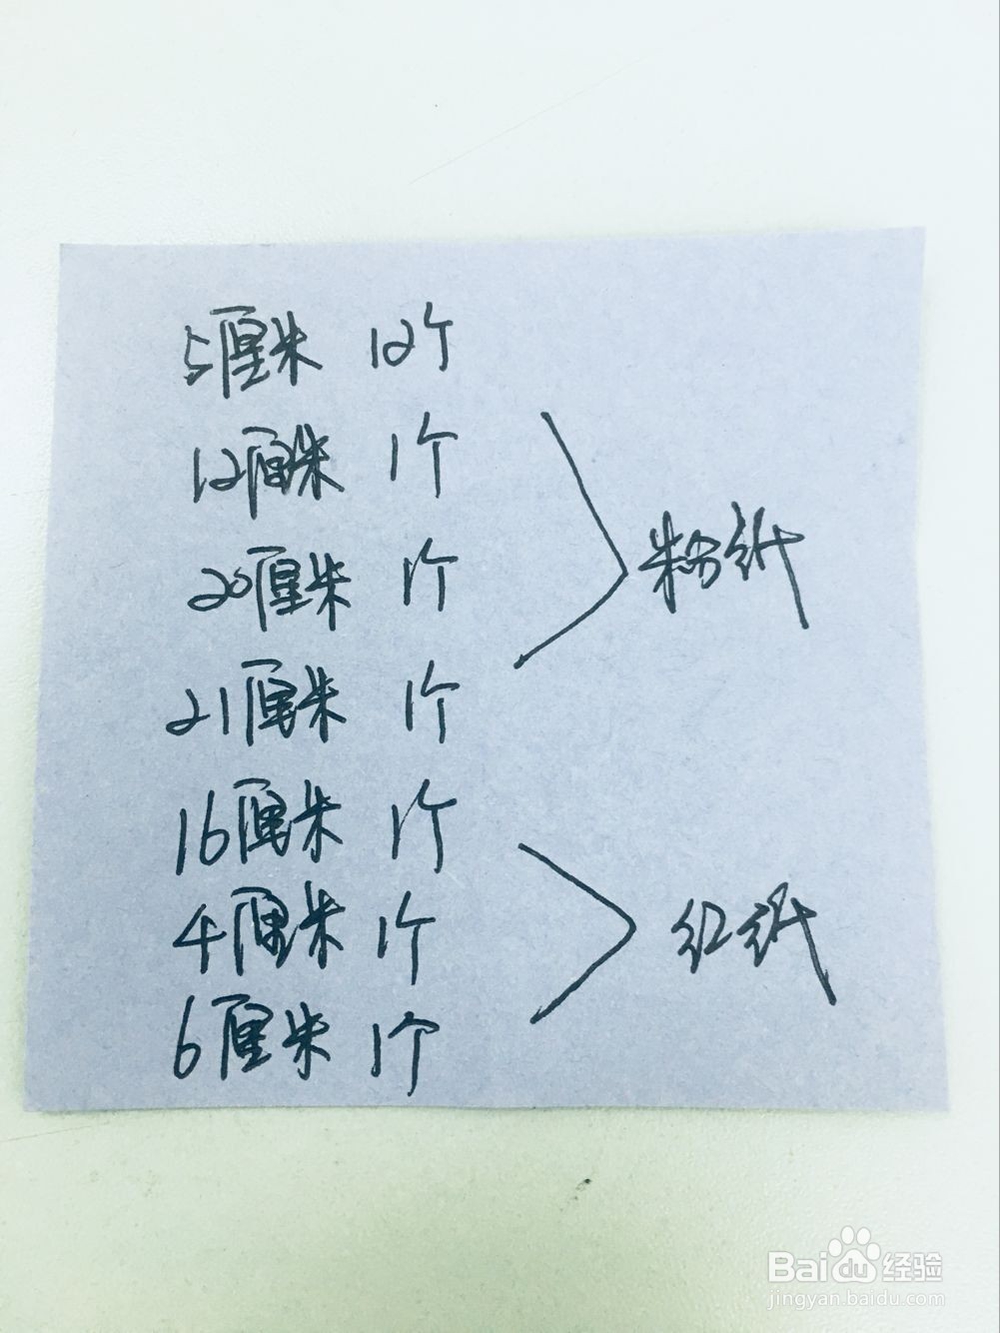 5厘米 12个
12厘米 1个
20厘米 1个
粉纸
21厘米 1个
16厘米 1个
4厘米 1个
红纸
6厘米 1个
Baidu经验
jingyan.baidu.com